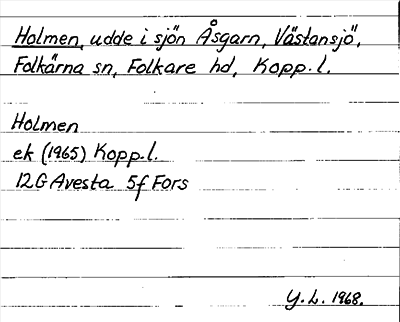 Holmen, udde i sjön Åsgarn, Västansjö,
Folkärna sn, Folkare hd, Kopp. l.
Holmen
ek (1965) Kopp. l.
12G Avesta 5f Fors
Y. L. 1968.